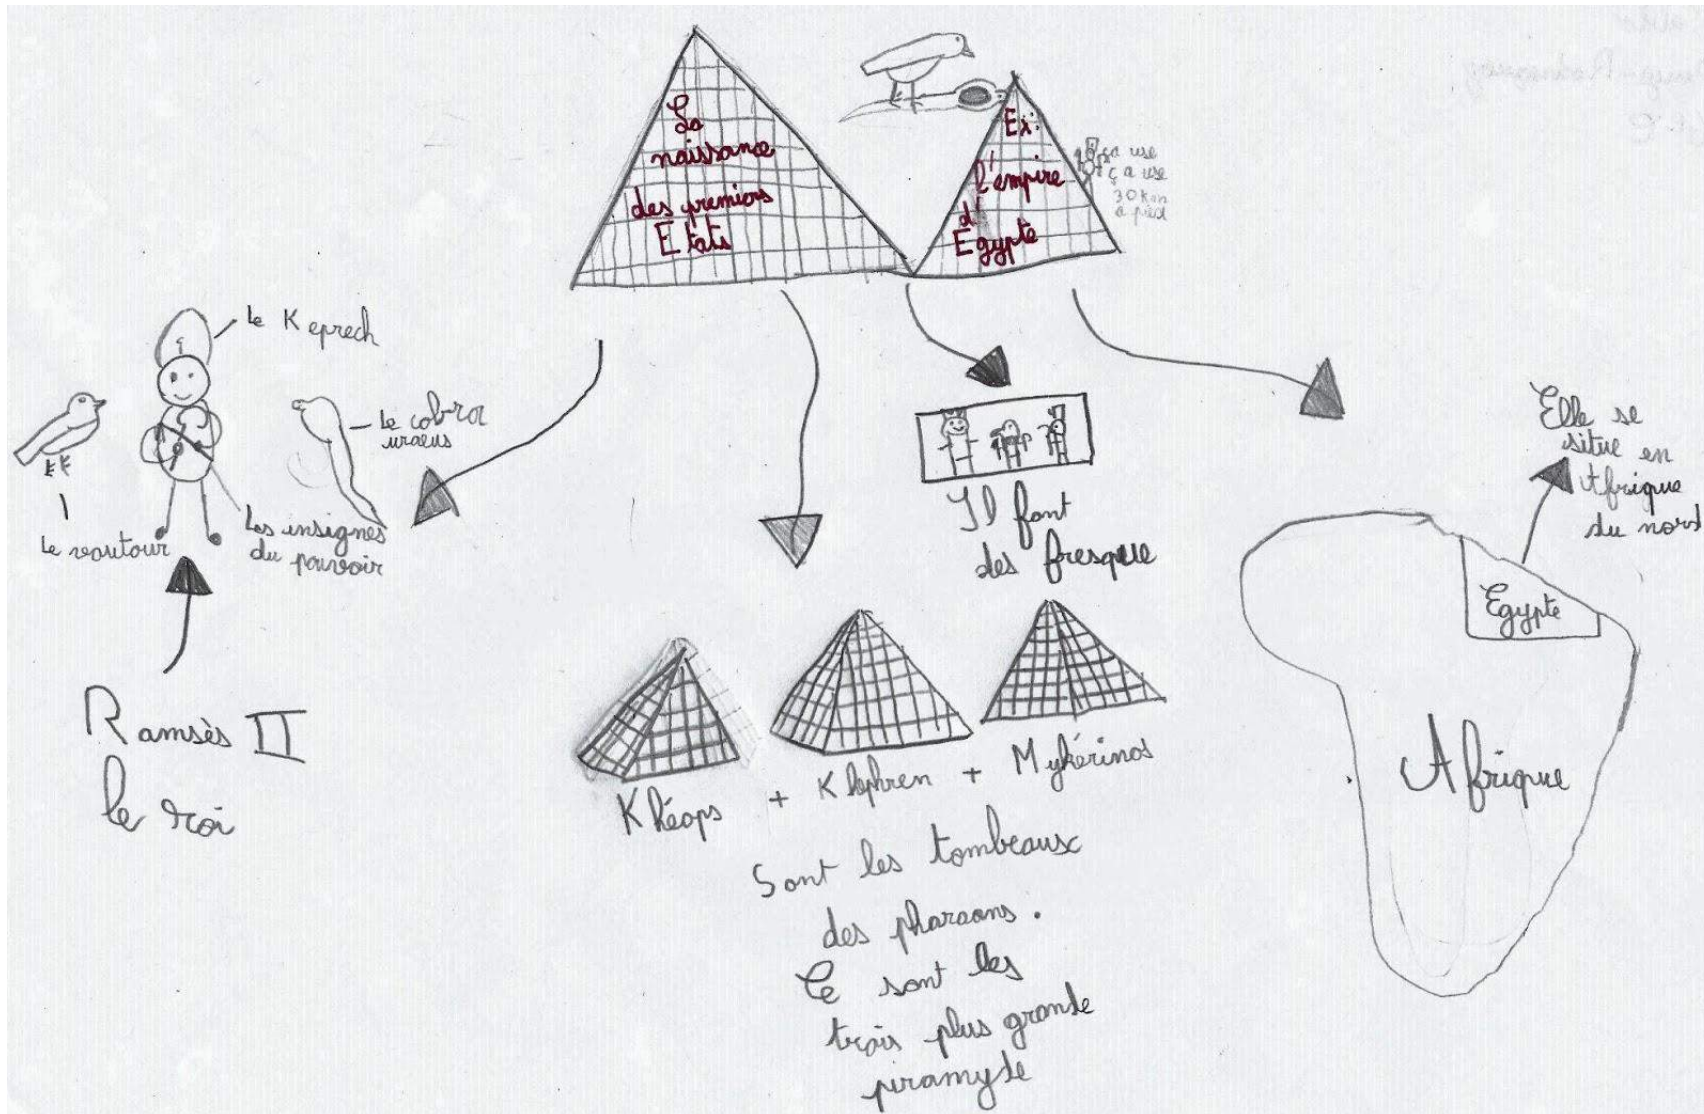 La
naissance
des premiers
Etats
Ex:
l'empire
d'
Egypte
ça use
ça use
30 km
à pied
le Keprech
le cobra
uraeus
Les insignes
du pouvoir
le vautour
Ramsès II
le roi
Il font
des fresque
Khéops + Khephren + Mykérinos
Sont les tombeaux
des pharaons.
Ce sont les
trois plus grande
piramyde
Elle se
situe en
Afrique
du nord
Egypte
Afrique